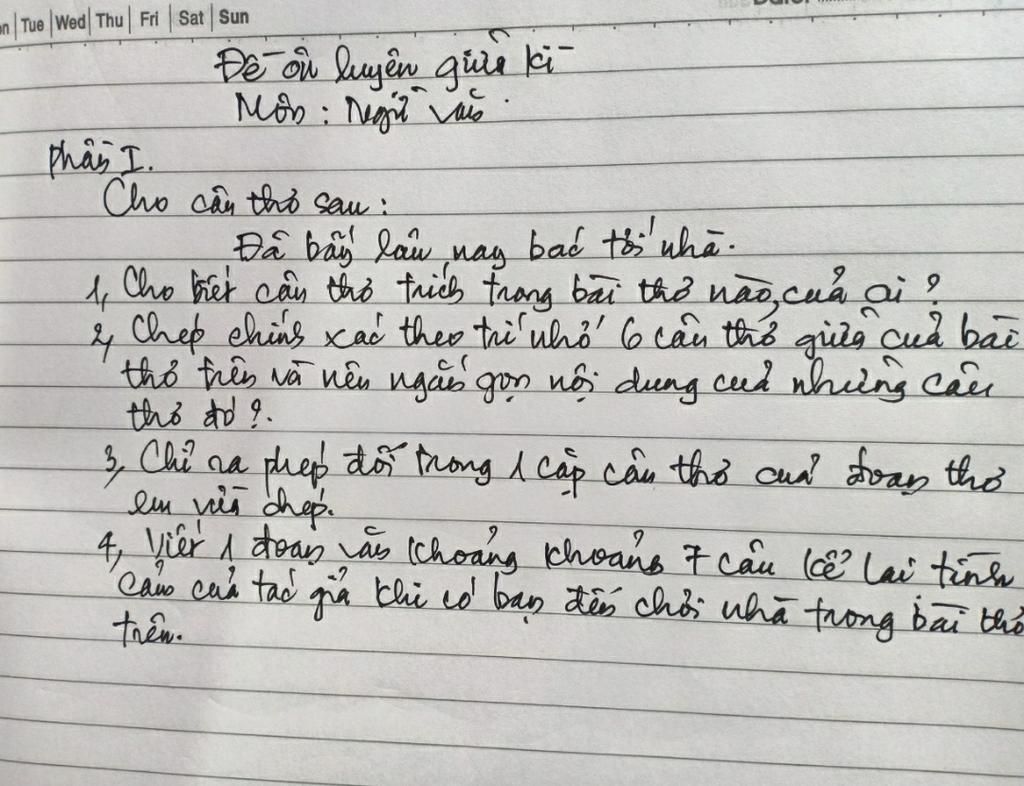 on | Tue | Wed | Thu | Fri | Sat | Sun
Đề ôn luyện giữa kì
Môn : Ngữ văn.
Phần I.
Cho câu thơ sau :
Đã bấy lâu nay bác tới nhà.
1, Cho biết câu thơ trích trong bài thơ nào, của ai ?
2, Chép chính xác theo trí nhớ 6 câu thơ giữa của bài
thơ trên và nêu ngắn gọn nội dung của những câu
thơ đó ?.
3, Chỉ ra phép đối trong 1 cặp câu thơ của đoạn thơ
em vừa chép.
4, Viết 1 đoạn văn khoảng khoảng 7 câu kể lại tình
cảm của tác giả khi có bạn đến chơi nhà trong bài thơ
trên.